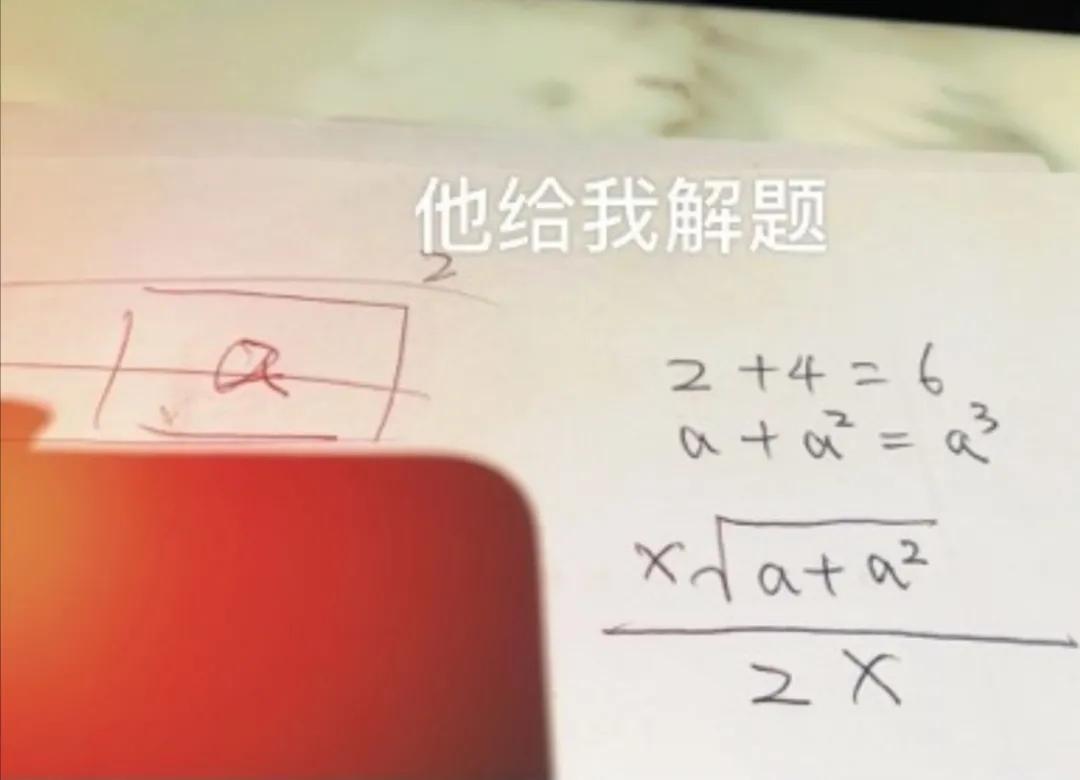 他给我解题
2
a
2 + 4 = 6
a + a² = a³
x√a + a²
2 x